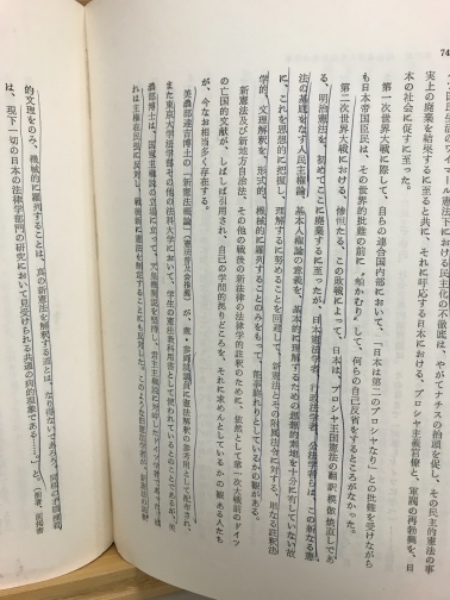 74
国民生活のワイマール憲法下における民主化の不徹底は、やがてナチスの抬頭を促し、その民主的憲法の事
実上の廃棄を結果するに至ると共に、それに呼応する日本における、プロシヤ主義官僚と、軍閥の再勃興を、日
本の社会に促すに至った。
第一次世界大戦に際して、自らの連合国内部において、「日本は第二のプロシヤなり」との批難を受けながら
も日本帝国臣民は、その世界的批難の前に、頬かむりして、何らの自己反省をするところがなかった。
第二次世界大戦における、惨恒たる、この敗戦によって、日本は、プロシヤ王国憲法の翻訳模倣焼直しであ
る、明治憲法を、初めてここに廃棄するに至ったが、日本憲法学者、行政法学者、公法学者らは、この新なる憲
法の基底をなす人民主権論、基本人権論の意義を、基本的に理解するための思想的素地を十分に有していない故
に、これを思想的に把握し、理解するに努めることを回避して、新憲法とその附属法令に対する、単なる註釈法
学的、文理解釈を、形式的、機械的に羅列することのみをもって、能事終れりとしているかの観がある。
新憲法及び新地方自治法、その他の戦後の新法律の法律学的註釈のために、依然として第一次大戦前のドイツ
の亡国的文献が、しばしば引用され、自己の学問的拠りどころを、それに求めんとしているかの観ある人たち
が、今なお相当多く存在する。
美濃部達吉博士の「新憲法概論」が、衆・参両院議員に憲法解釈の参考用として配布され、
また東京大学法学部その他の法科大学において、学生の憲法教科用書として使われているとのことであるが、美
濃部博士は、国家主権論の立場に立って、天皇機関説を堅持し、
れは主権在民論に反対し、戦後新に憲法を制定することにも反対した。このような旧憲法学者が、新憲法の
的文理をのみ、機械的に羅列することは、真の新憲法を解釈する道とは、なり得ないであろう。
は、現下一切の日本の法律学部門の研究において見受けられる共通の病的現象である……。」と。